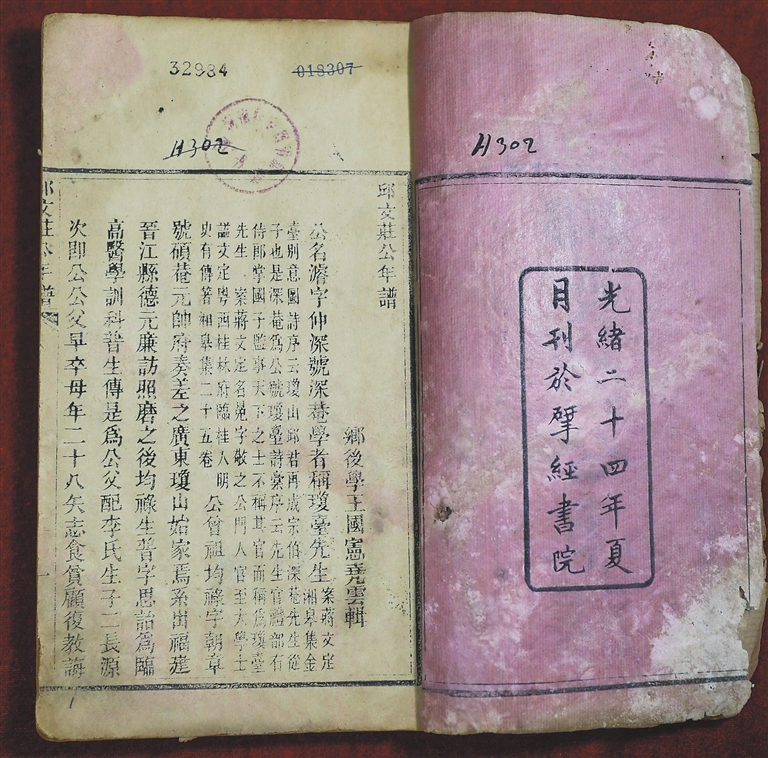 H302
光緒二十四年夏
月刊於揅經書院
32984
018307
H302
邱文莊公年譜
鄉後學王國憲堯雲輯
公名濬字仲深號深菴學者稱瓊臺先生
案蔣文定
湘皋集金
臺別意圖詩序云瓊山邱君再成宗伯深菴先生從
子也是深菴爲公號瓊臺詩彙序云先生官禮部右
侍郎掌國子監事天下之士不稱其官而稱爲瓊臺
先生 案蔣文定名冕字敬之公門人官至大學士
諡文定粵西桂林府臨桂人明
史有傳著湘皋集二十五卷
公曾祖均祿字朝章
號碩菴元帥府奏差之廣東瓊山始家焉系出福建
晉江縣德元廉訪照磨之後均祿生普字思詒爲臨
高醫學訓科普生傳是爲公父配李氏生子二長源
次即公公父早卒母年二十八矢志食貧顧復教誨
邱文莊公年譜
一